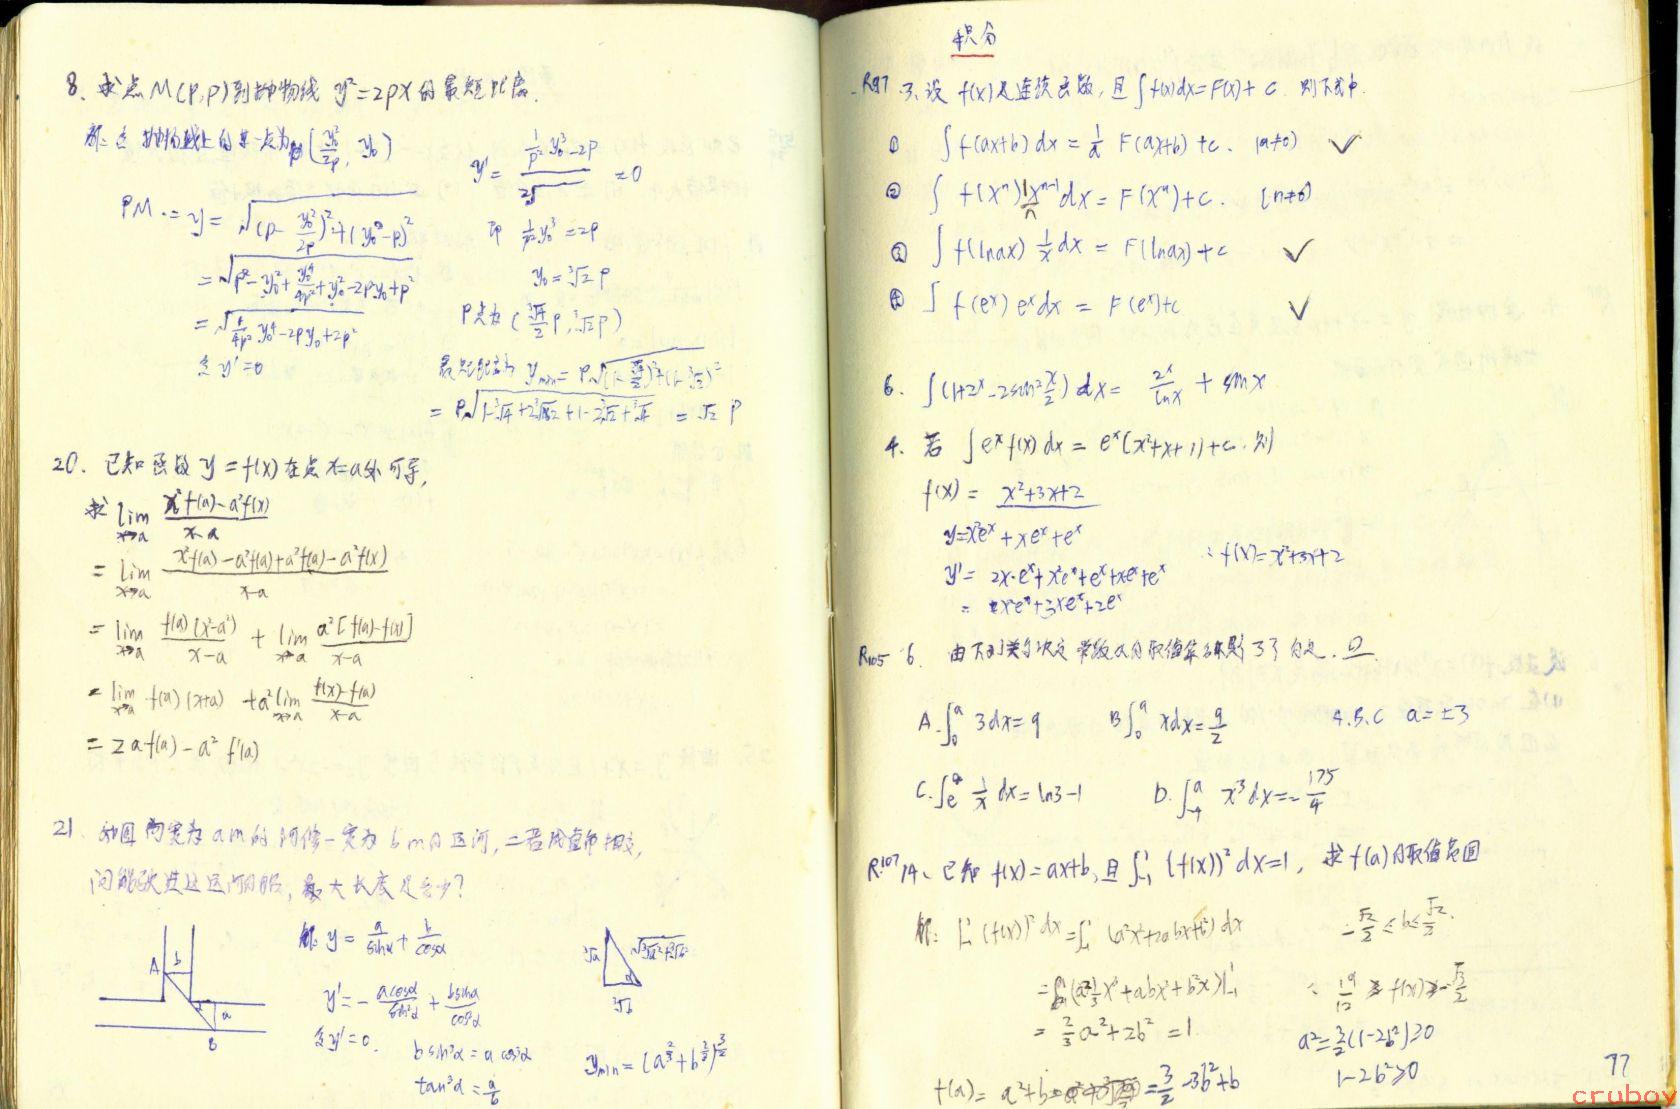 8、求点M(P,P)到抛物线 y²=2px的最短距离.
解: 令抛物线上的某一点为P(y₀²/2p, y₀)
PM = y = √((p - y₀²/2p)² + (y₀-p)²)
= √(p² - y₀² + y₀⁴/4p² + y₀² - 2py₀ + p²)
= √(1/4p² y₀⁴ - 2py₀ + 2p²)
令 y'=0
y' = (1/p² y₀³ - 2p) / 2√ = 0
即 1/p² y₀³ = 2p
y₀ = ³√2 p
P点为 (³√4/2 p, ³√2 p)
最短距离为 y min = P√((1-³√4/2)²+(1-³√2)²)
20. 已知函数 y=f(x)在点x=a处可导,
求 lim x→a (x²f(a)-a²f(x))/(x-a)
= lim x→a (x²f(a)-a²f(a)+a²f(a)-a²f(x))/(x-a)
= lim x→a f(a)(x²-a²)/(x-a) + lim x→a a²[f(a)-f(x)]/(x-a)
= lim x→a f(a)(x+a) + a² lim x→a (f(x)-f(a))/(x-a)
= 2af(a) - a² f'(a)
21. 如图 宽为 am的河修一宽为 bm的运河, 二者成直角相交,
问能驶进这运河的船, 最大长度是多少?
A
b
a
B
解: y = a/sinα + b/cosα
y' = - a cosα/sin²α + b sinα/cos²α
令y'=0.
b sin³α = a cos³α
tan³α = a/b
³√a
³√b
α
y min = (a^(2/3) + b^(2/3))^(3/2)
积分
P97 3、设 f(x)是连续函数, 且 ∫f(x)dx=F(x)+C. 则下式中
① ∫f(ax+b)dx = 1/a F(ax+b)+C. (a≠0) ✓
② ∫ f(xⁿ) 1/n xⁿ⁻¹dx = F(xⁿ)+C. (n≠0)
③ ∫f(lnax) 1/x dx = F(lnax)+C ✓
④ ∫ f(eˣ) eˣdx = F(eˣ)+C ✓
6. ∫(1+2ˣ-2sin²x/2) dx = 2ˣ/lnx + sinx
4. 若 ∫eˣf(x)dx = eˣ(x²+x+1)+C. 则
f(x) = x²+3x+2
y=x²eˣ+xeˣ+eˣ
y' = 2x·eˣ+x²eˣ+eˣ+xeˣ+eˣ
= x²eˣ+3xeˣ+2eˣ
∴ f(x)=x²+3x+2
P105 6. 由下列关系决定 常数a的取值
A. ∫₀ᵃ 3dx=9 B ∫₀ᵃ xdx=9/2 A.B.C a=±3
C. ∫ₑᵃ 1/x dx=ln3-1 D. ∫₋₄ᵃ x³dx=-175/4
P107 14、已知 f(x)=ax+b, 且∫₋₁¹ (f(x))²dx=1, 求 f(a)的取值范围
解: ∫₋₁¹ (f(x))²dx=∫₋₁¹ (a²x²+2abx+b²)dx
= (a²1/3x³+abx²+b²x)|₋₁¹
= 2/3 a²+2b² = 1
f(a) = a²+b = 3/2 - 3b²+b
-√2/2 ≤ b ≤ √2/2.
∴ 19/12 ≥ f(x) ≥ -√2/2
a²=3/2(1-2b²)≥0
1-2b²≥0
77
cruboy